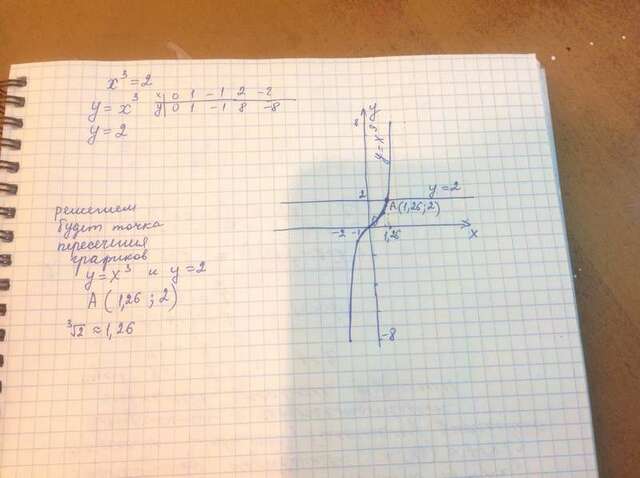 x³ = 2
y = x³
x 0 1 -1 2 -2
y 0 1 -1 8 -8
y = 2
решением
будет точка
пересечения
графиков
y = x³ и y = 2
A (1,26 ; 2)
³√2 ≈ 1,26
y
8
y = x³
2
y = 2
A (1,26 ; 2)
-2 -1
1,26
x
-8